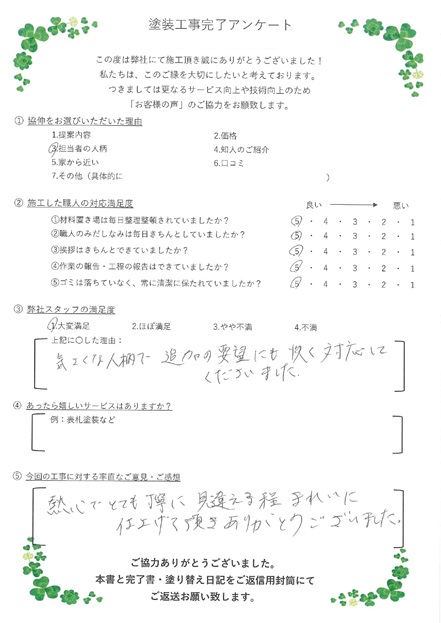 塗装工事完了アンケート
この度は弊社にて施工頂き誠にありがとうございました！
私たちは、このご縁を大切にしたいと考えております。
つきましては更なるサービス向上や技術向上のため
「お客様の声」のご協力をお願致します。
① 協伸をお選びいただいた理由
1.提案内容 2.価格
3.担当者の人柄 4.知人のご紹介
5.家から近い 6.口コミ
7.その他（具体的に ）
② 施工した職人の対応満足度 良い 悪い
①材料置き場は毎日整理整頓されていましたか？ 5 ・ 4 ・ 3 ・ 2 ・ 1
②職人のみだしなみは毎日きちんとしていましたか？ 5 ・ 4 ・ 3 ・ 2 ・ 1
③挨拶はきちんとできていましたか？ 5 ・ 4 ・ 3 ・ 2 ・ 1
④作業の報告・工程の報告はできていましたか？ 5 ・ 4 ・ 3 ・ 2 ・ 1
⑤ゴミは落ちていなく、常に清潔に保たれていましたか？ 5 ・ 4 ・ 3 ・ 2 ・ 1
③ 弊社スタッフの満足度
1.大変満足 2.ほぼ満足 3.やや不満 4.不満
上記に〇した理由：
気さくな人柄で 追加の要望にも 快く 対応して
くださいました.
④ あったら嬉しいサービスはありますか？
例：表札塗装など
⑤ 今回の工事に対する率直なご意見・ご感想
熱心でとても丁寧に 見違える程 きれいに
仕上げて頂き ありがとうございました.
ご協力ありがとうございました。
本書と完了書・塗り替え日記をご返信用封筒にて
ご返送お願い致します。